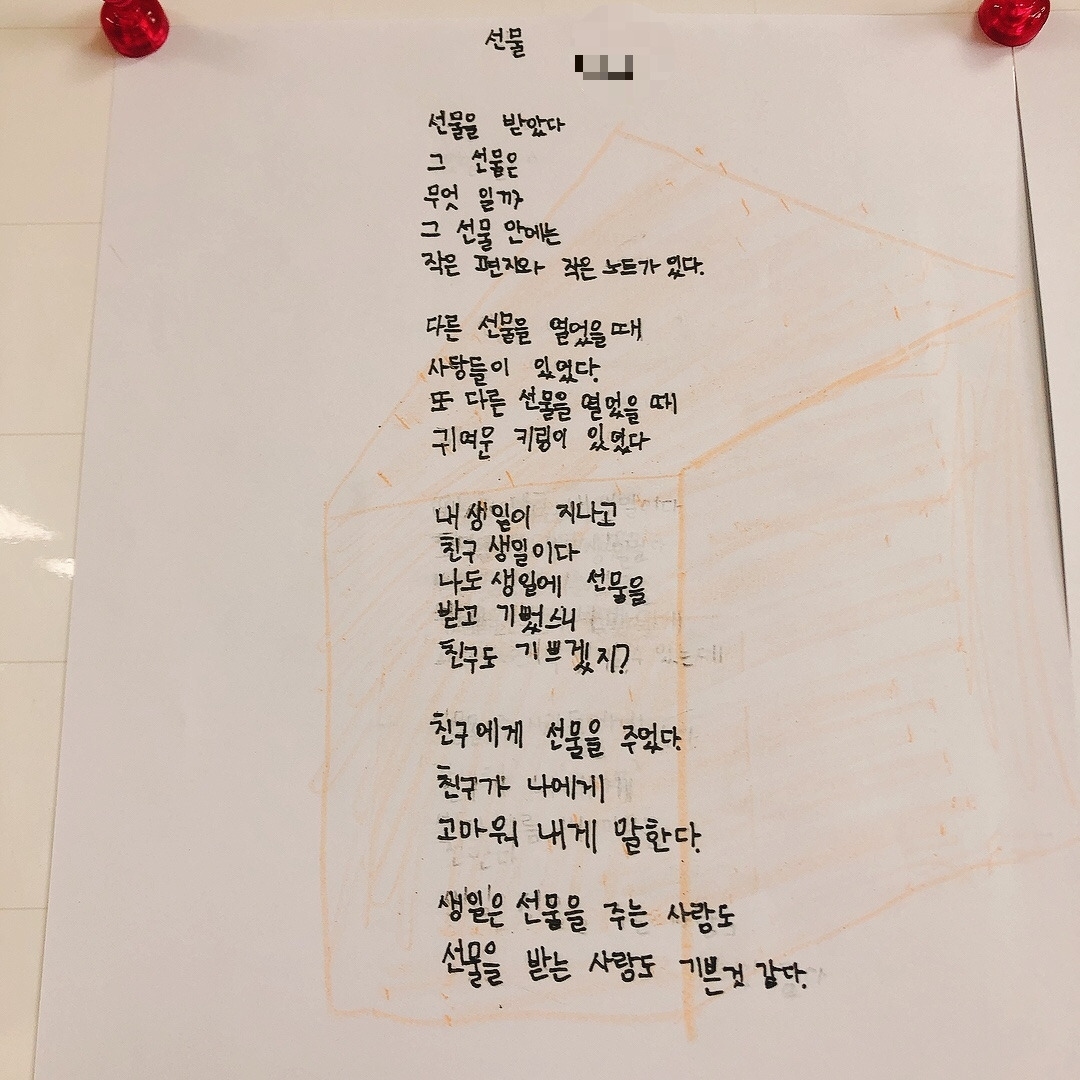 선물
선물을 받았다
그 선물은
무엇 일까
그 선물 안에는
작은 편지와 작은 노트가 있다.
다른 선물을 열었을때
사탕들이 있었다.
또 다른 선물을 열었을 때
귀여운 키링이 있었다
내 생일이 지나고
친구 생일이다
나도 생일에 선물을
받고 기뻤스니
친구도 기쁘겠지?
친구에게 선물을 주었다.
친구가 나에게
고마워 내게 말한다.
생일은 선물을 주는 사람도
선물을 받는 사람도 기쁜것 같다.